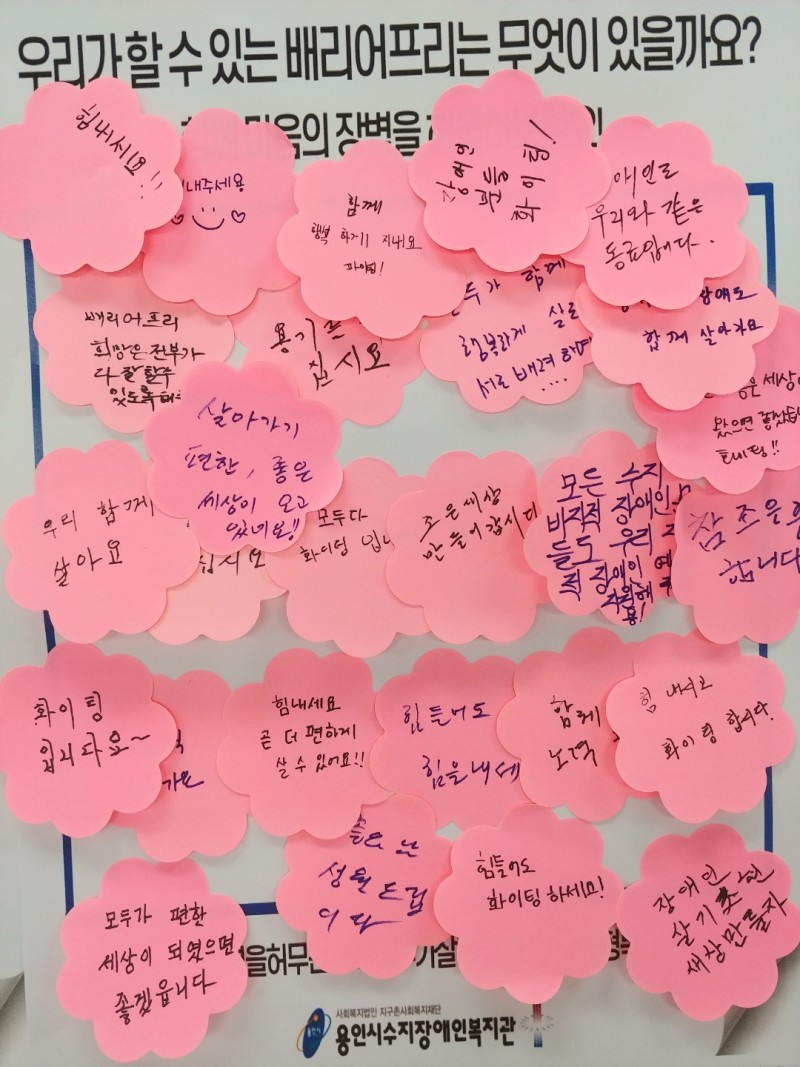 우리가 할 수 있는 배리어프리는 무엇이 있을까요?
음의 장벽을
힘내세요!!
내주세용
함께
행복 하기 지내요
파이팅!
장애인
분들
화이팅!
애인도
우리와 같은
동료입니다.
배리어프리
희망은 전부가
다 잘할수
있도록
용기
십시요
두가 함께
행복하게
서로 배려
함께 살아가요
은 세상이
왔으면
화이팅!!
살아가기
편한, 좋은
세상이 오고
있네요!!
우리 함께
살아요
십시요
모두다
화이팅
조은세상
만들어갑시다
모든 수지
비지적 장애인
들도 우리
적 장애인
참 조은
합니다
화이팅
입니다요~
가요
힘내세요
곧 더 편하게
살 수 있어요!!
힘들어도
힘을내세
함께
노력
힘 내시고
화이팅 합시다.
모두가 편한
세상이 되였으면
좋겠읍니다
힘들어도
화이팅하세요!
장애인
살기
세상만들자
을허무는
사회복지법인 지구촌사회복지재단
용인시수지장애인복지관